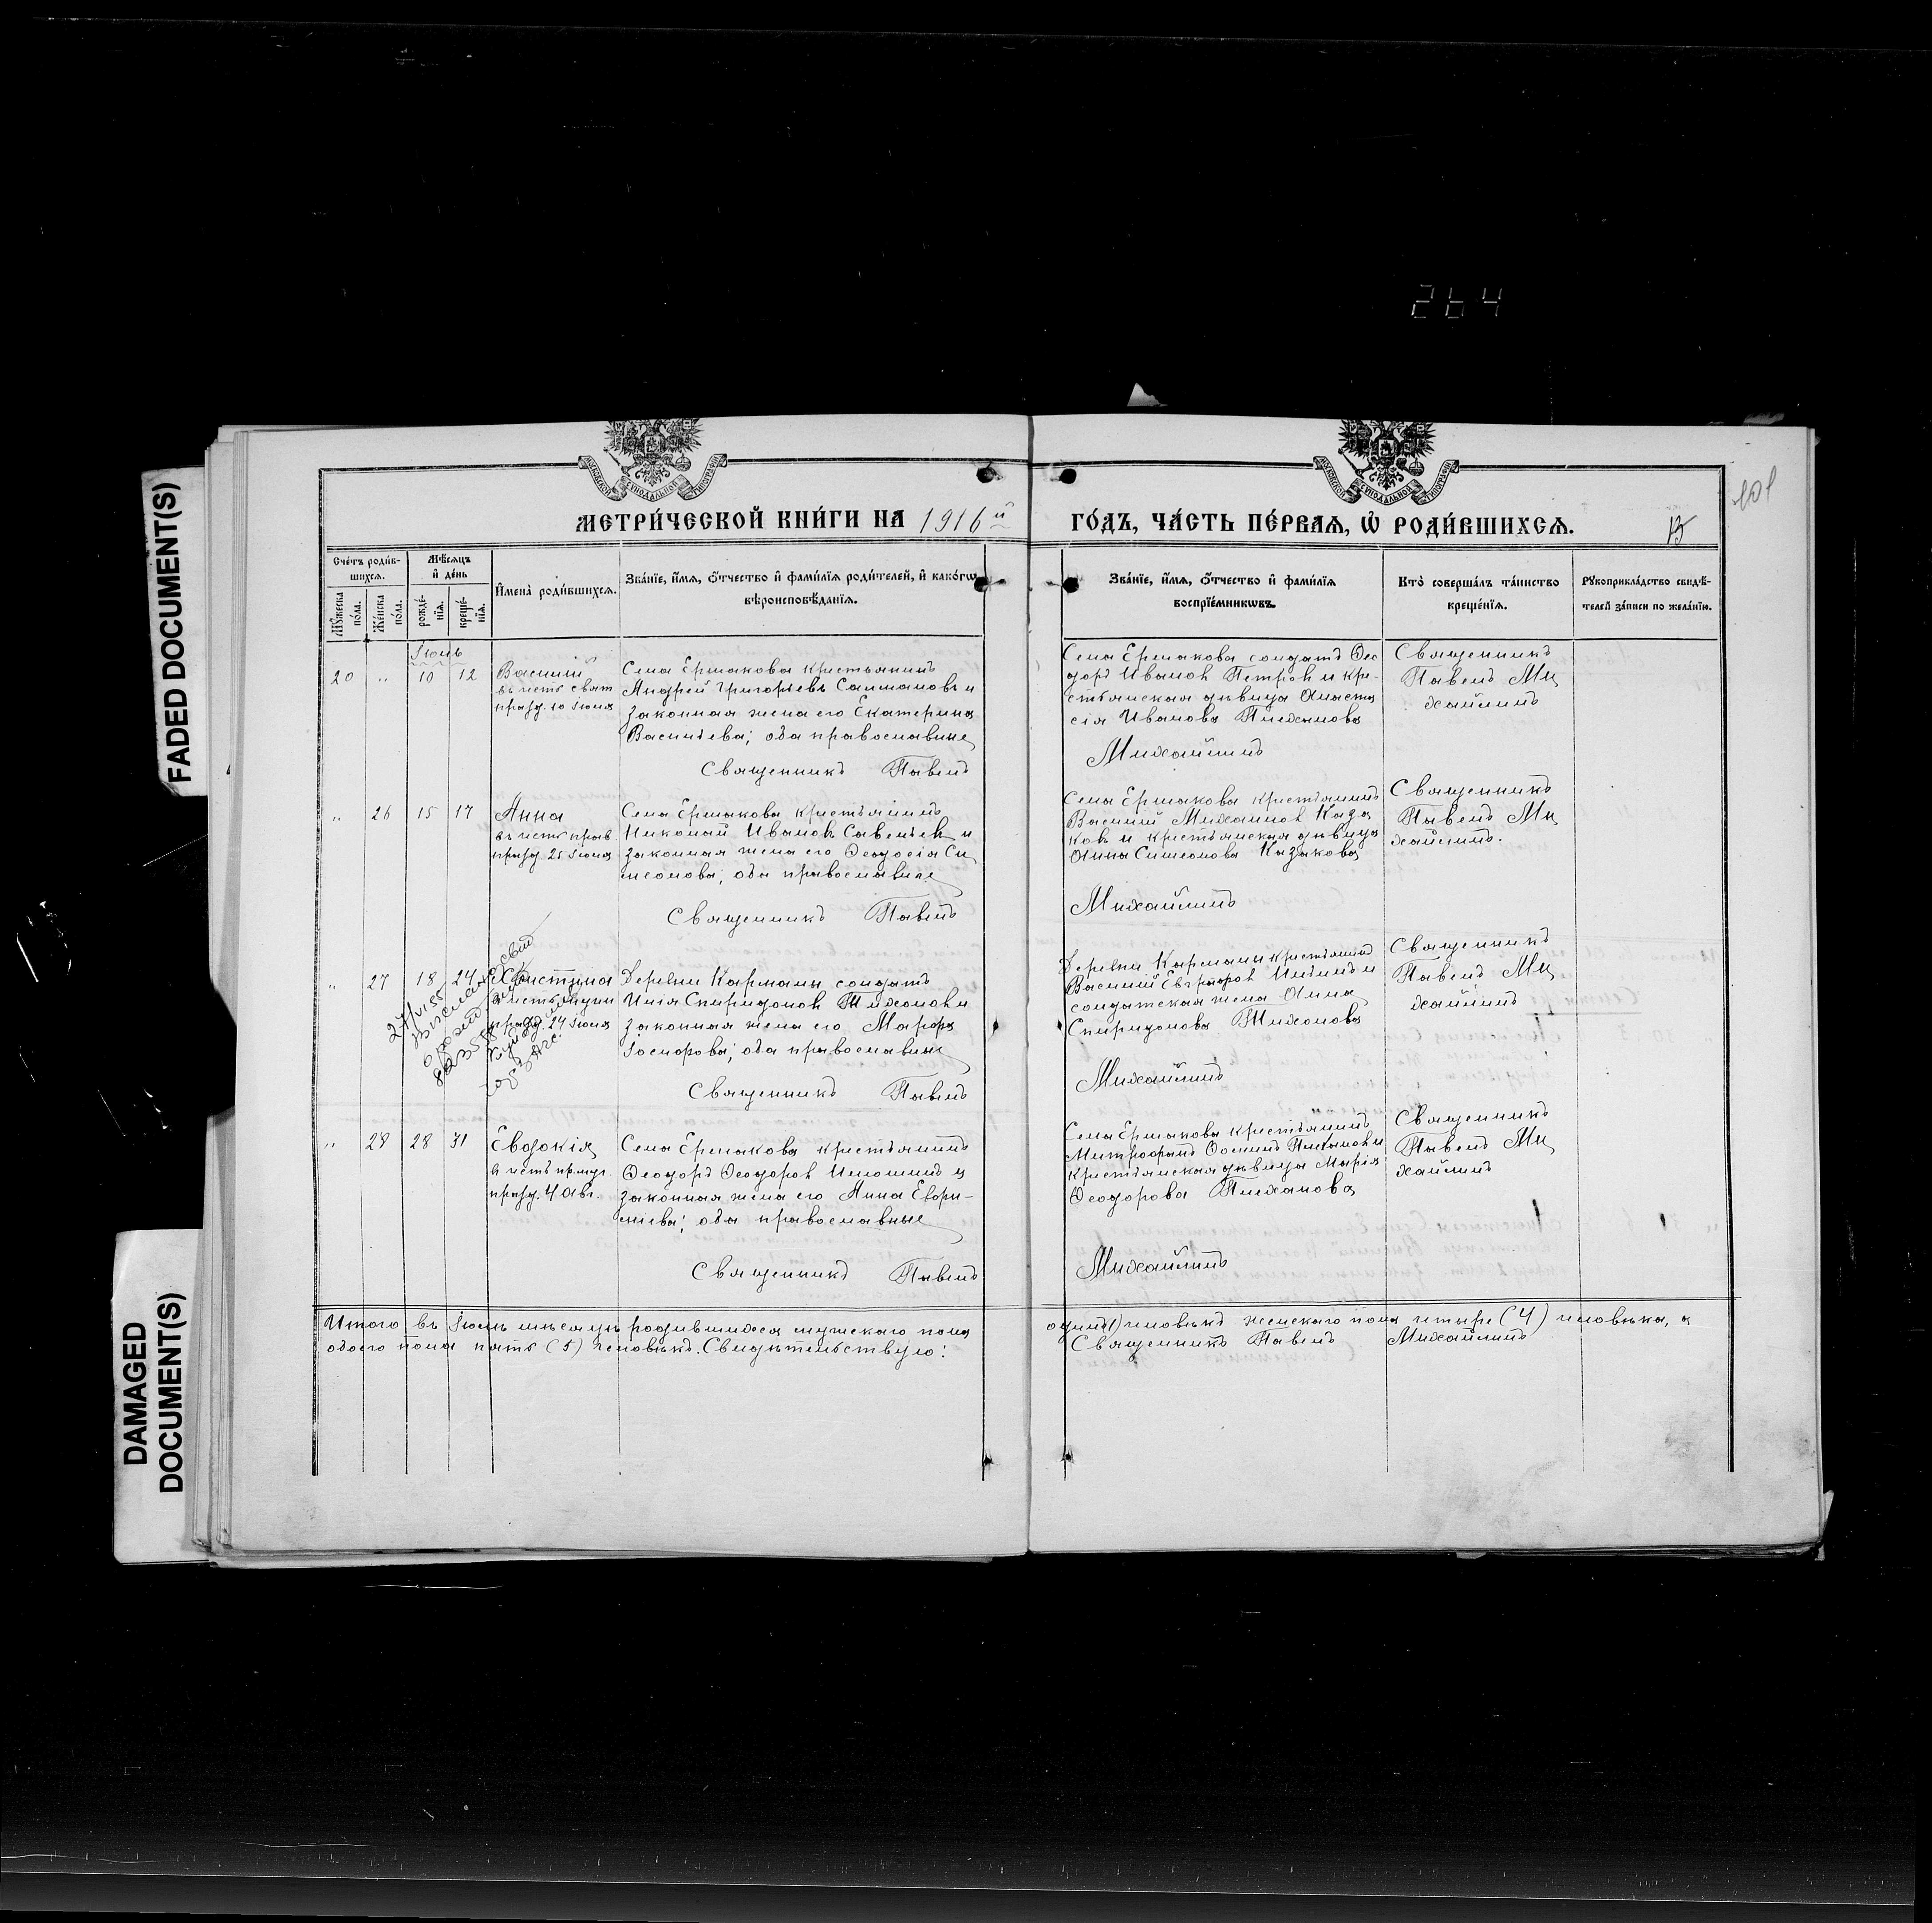 264
FADED DOCUMENT(S)
DAMAGED
DOCUMENT(S)
МОСКОВСКОЙ СУНОДАЛЬНОЙ ТИПОГРАФІИ
МОСКОВСКОЙ СУНОДАЛЬНОЙ ТИПОГРАФІИ
МЕТРИ́ЧЕСКОЙ КНИ́ГИ НА 1916 й
ГО́ДЪ, ЧА́СТЬ ПЕ́РВАЯ, Ѡ РОДИ́ВШИХСЯ.
Сче́тъ роди́в-
шихся.
Мѣ́сяцъ
и҆ де́нь
Мꙋ́жеска
по́ла.
Же́нска
по́ла.
рожде́-
нїя.
креще́-
нїя.
И҆мена̀ роди́вшихся.
Зва́нїе, и҆́мя, ѻ҆́тчество и҆ фами́лїя роди́телей, и҆ како́гѡ
вѣроисповѣ́данїя.
Зва́нїе, и҆́мя, ѻ҆́тчество и҆ фами́лїя
воспрїе́мникѡвъ.
Кто̀ соверша́лъ та́инство
креще́нїя.
Рꙋкоприкла́дство свидѣ́-
телей за́писи по жела́нїю.
Іюль
20 " 10 12 Василій
въ честь свят.
празд. 10 Іюля
Села Ершакова крестьянинъ
Андрей Григорьевъ Салмановъ и
законная жена его Екатерина
Васильева; оба православные
Священникъ Павелъ
Села Ершакова солдатъ Ѳео
доръ Ивановъ Петровъ и кре-
стьянская дѣвица Анаста
сія Иванова Плеханова
Михайлинъ
Священникъ
Павелъ Ми
хайлинъ
" 26 15 17 Анна
въ честь прав.
празд. 25 Іюля
Села Ершакова крестьянинъ
Николай Ивановъ Савельевъ и
законная жена его Ѳеодосія Си
меонова; оба православные
Священникъ Павелъ
Села Ершакова крестьянинъ
Василій Михаиловъ Каза
ковъ и крестьянская дѣвица
Анна Симеонова Казакова
Михайлинъ
Священникъ
Павелъ Ми
хайлинъ.
" 27 18 24 Христина
празд. 24 Іюля
Деревни Кармалы солдатъ
Илія Спиридоновъ Тихоновъ и
законная жена его Марфа
оба православные
Священникъ Павелъ
Деревни Кармалы крестьянинъ
Василій Евграфовъ и
солдатская жена Анна
Спиридонова Тихонова
Михайлинъ
Священникъ
Павелъ Ми
хайлинъ
" 28 28 31 Евдокія
въ честь
празд. 4 Авг.
Села Ершакова крестьянинъ
Ѳеодоръ Ѳеодоровъ Илюшинъ и
законная жена его Анна
оба православные
Священникъ Павелъ
Села Ершакова крестьянинъ
Митрофанъ Плехановъ и
крестьянская дѣвица Марія
Ѳеодорова Плеханова
Михайлинъ
Священникъ
Павелъ Ми
хайлинъ
Итого въ Іюлѣ мѣсяцѣ родившихся мужскаго пола
одинъ (1) человѣкъ женскаго пола четыре (4) человѣка, а
обоего пола пять (5) человѣкъ. Свидѣтельствую:
Священникъ Павелъ Михайлинъ